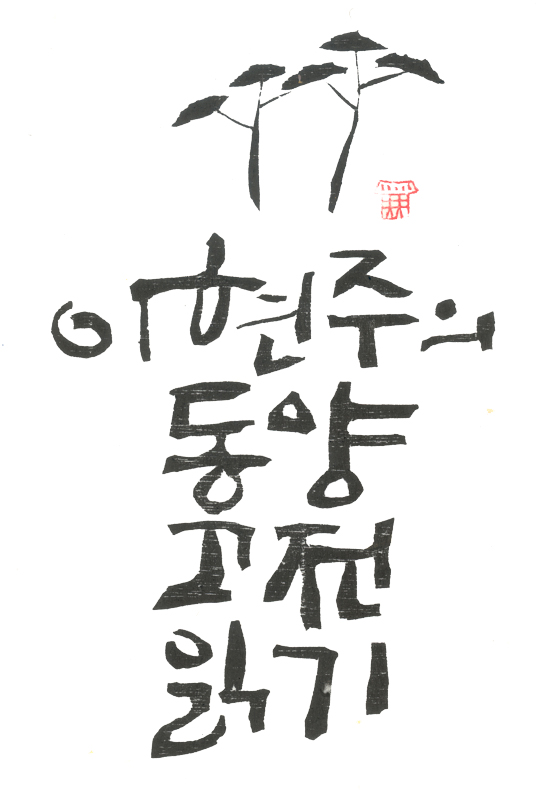 이현주의
동양
고전
읽기